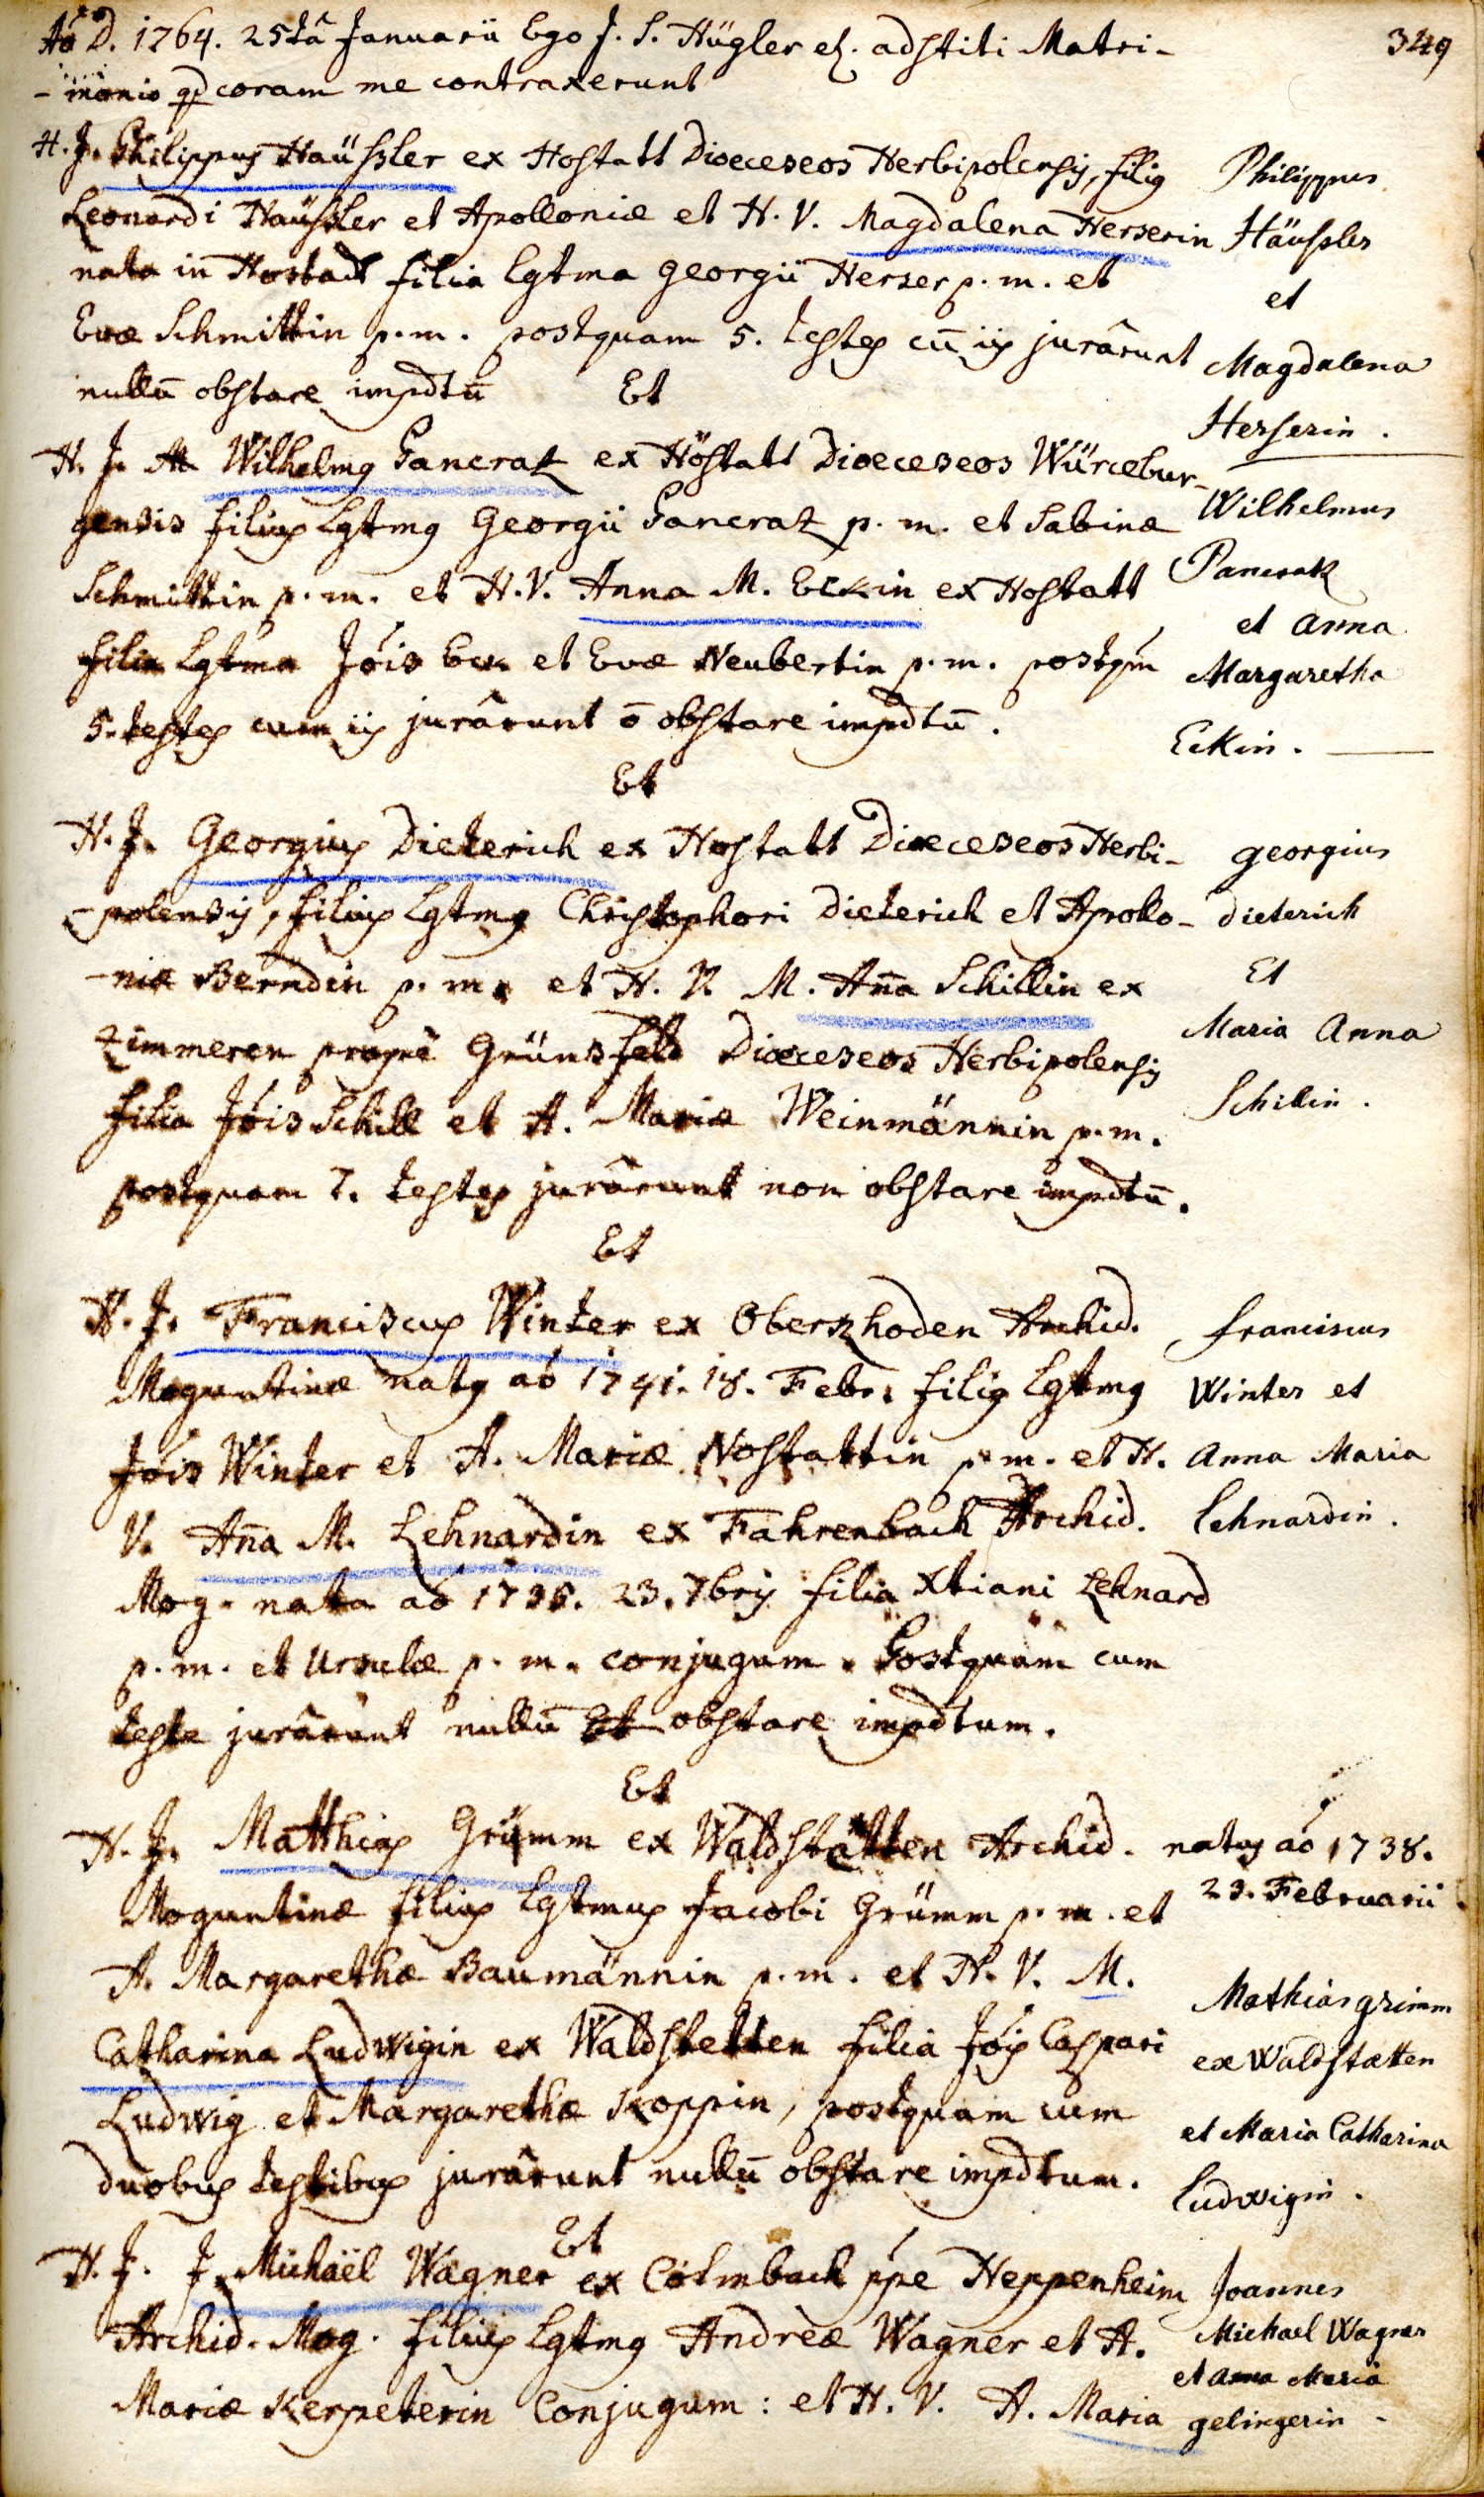 349
Aō D. 1764. 25tâ Januarii Ego J. S. Hügler adstiti Matri-
-monio qd coram me contraxerunt
H. J. Philippus Haüssler ex Hostatt Dioeceseos Herbipolensis, filig
Leonardi Haüssler et Apolloniæ et H. V. Magdalena Herserin
nata in Hostadt filia lgtma georgii Herser p. m. et
Evæ Schmittin p. m. postquam 5. testes cū iis jurârunt
nullū obstare impdtū Et
H. J. Wilhelmg Pancratz ex Höstatt Dioeceseos Würcebur-
gensis filius Lgtmg Georgii Pancratz p. m. et Sabinæ
Schmittin p. m. et H. V. Anna M. Eckin ex Hostatt
filia Lgtma Jóis Eck et Evæ Neubertin p. m. postqm
5. testes cum iis jurârunt ō obstare impdtū.
Et
H. J. Georgius Dieterich ex Hostatt Dioeceseos Herbi-
-polensis, filius Lgtmg Christophori Dieterich et Apollo-
-niæ Berndin p. m. et H. V. M. Aña Schillin ex
Zimmeren propè Grünsfeld Dioeceseos Herbipolensis
filia Jóis Schill et A. Mariæ Weinmännin p. m.
postquam 7. testes jurârunt non obstare impdtū.
Et
H. J. Franciscus Winter ex Oberszhoden Archid.
Moguntinæ natg aō 1741. 18. Febr. filig Lgtmg
Jóis Winter et A. Mariæ Nostattin p. m. et H.
V. Aña M. Lehnardin ex Fahrenbach Archid.
Mog. nata aō 1738. 23. 7bris filia Xtiani Lehnard
p. m. et Ursulæ p. m. conjugum. Postquam cum
teste jurârunt nullū obstare impdtum.
Et
H. J. Matthias Grümm ex Waldstätten Archid.
Moguntinæ filius Lgtmus Jacobi Grümm p. m. et
A. Margarethæ Baumännin p. m. et H. V. M.
Catharina Ludwigin ex Waldstetten filia Jóis Caspari
Ludwig et Margarethæ Koppin, postquam cum
duobus testibus jurârunt nullū obstare impdtum.
Et
H. J. J. Michaël Wagner ex Colmbach ppe Heppenheim
Archid. Mog. filius Lgtmg Andreæ Wagner et A.
Mariæ Kerpeterin Conjugum: et H. V. A. Maria
Philippus
Häussler
et
Magdalena
Herserin.
Wilhelmus
Pancratz
et Anna
Margaretha
Eckin.
georgius
dieterich
Et
Maria Anna
Schillin.
franciscus
Winter et
Anna Maria
lehnardin.
natus aō 1738.
23. Februarii.
Mathias grimm
ex Waldstætten
et Maria Catharina
Ludwigin.
Joannes
Michael Wagner
et Anna Maria
gelingerin